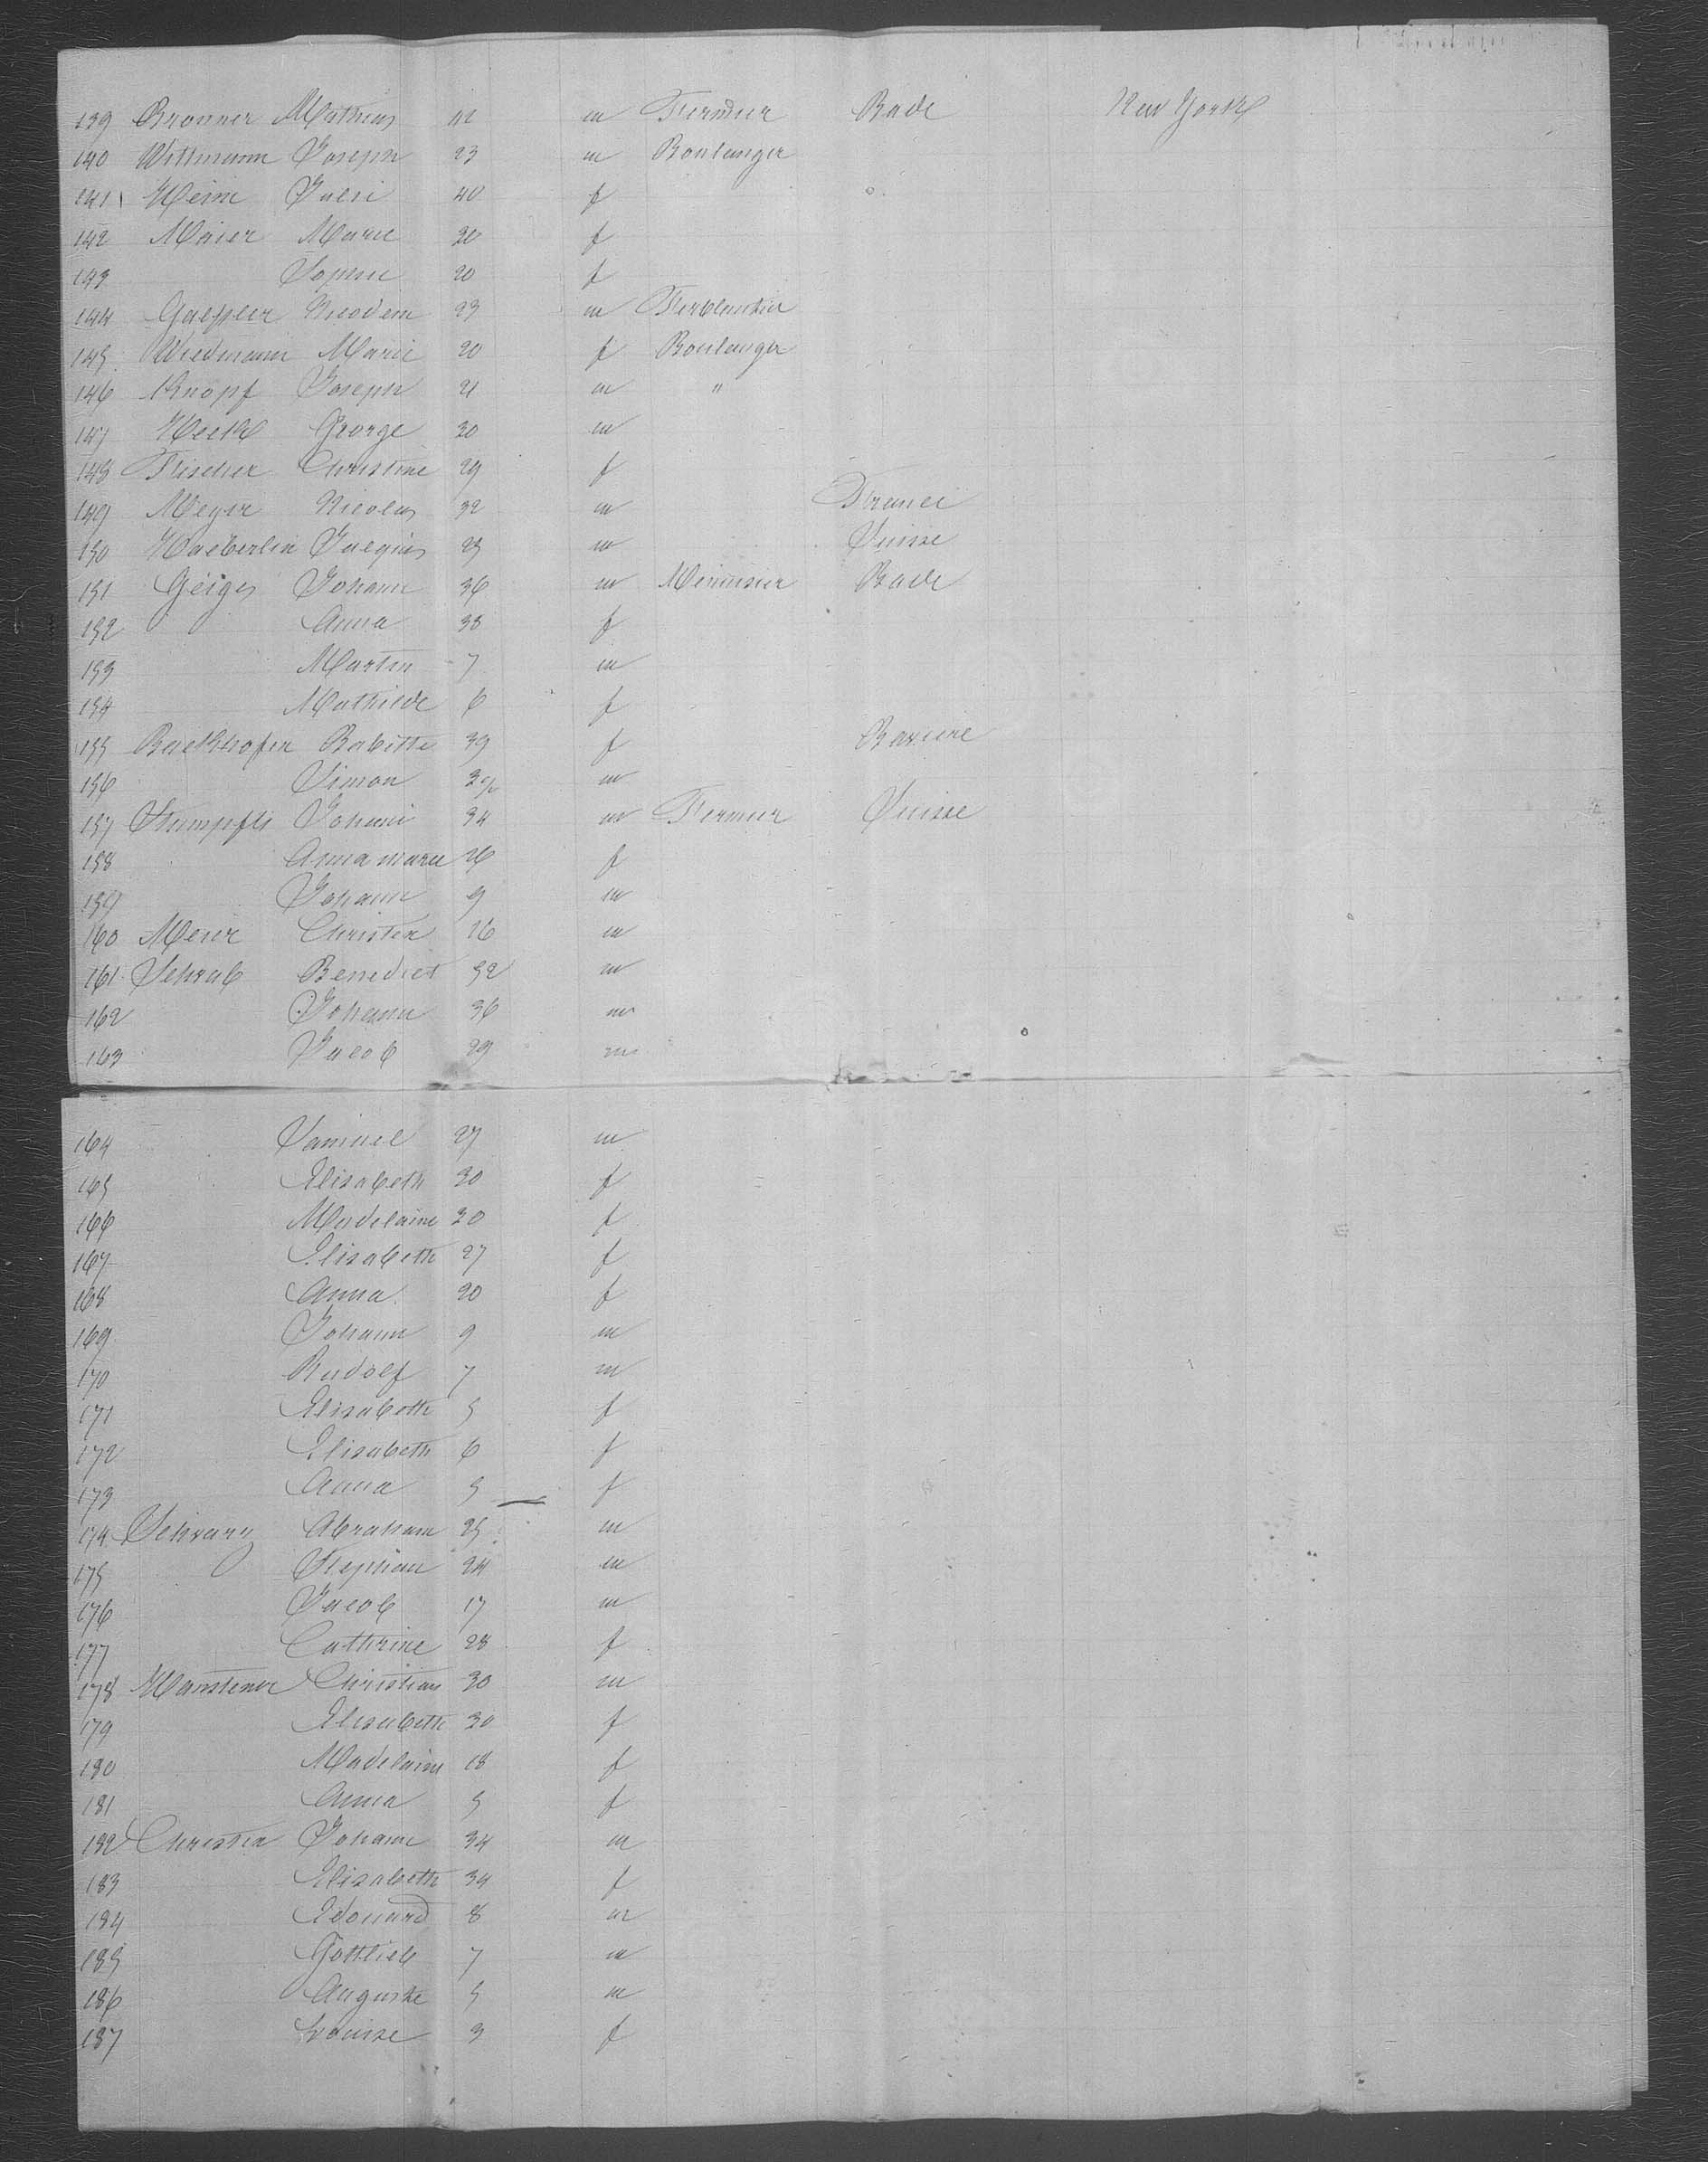 139 Bronner Mathias m Fermier Bade New York
140 Wittmann Joseph 23 m Boulanger
141 Heim Julie 40 f
142 Maier Marie 20 f
143 Sophie 20 f
144 Nicodem 23 m Ferblantier
145 Wiedmann Marie 20 f Boulanger
146 Knopf Joseph 21 m "
147 George 30 m
148 Fischer Christine 29 f
149 Meyer Nicolas 32 m France
150 Haeberlin 23 m Suisse
151 Geiges Johann 36 m Menusier Bade
152 Anna 38 f
153 Martin 7 m
154 Mathilde 6 f
155 Backhofer Babitte 39 f Baviere
156 Simon m
157 Stumpfli Johann 34 m Fermier Suisse
158 Anna marie 26 f
159 Johann 9 m
160 Meier Christen 26 m
161 Schrab Benedict 52 m
162 Johann 36 m
163 Jacob 29 m
164 Samuel 27 m
165 Elisabeth 30 f
166 Madelaine 30 f
167 Elisabeth 27 f
168 Anna 20 f
169 Johann 9 m
170 Rudolf 7 m
171 Elisabeth 5 f
172 Elisabeth 6 f
173 Anna 5 f
174 Abraham 25 m
175 Stephan 24 m
176 Jacob 17 m
177 Cathrine 28 f
178 Christian 30 m
179 Elisabeth 30 f
180 Madelaine 18 f
181 Anna 5 f
182 Christen Johann 34 m
183 Elisabeth 34 f
184 Edouard 8 m
185 Gottlieb 7 m
186 Auguste 5 m
187 Louise 3 f